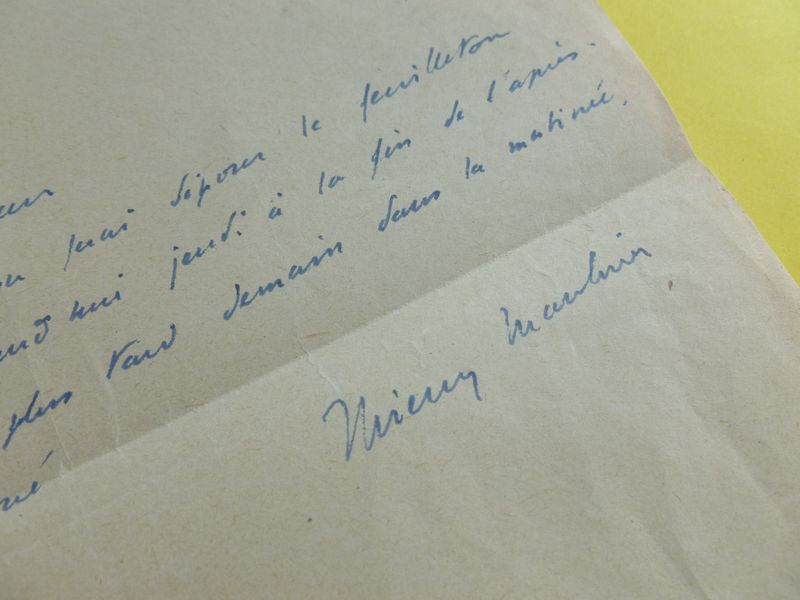 ferai déposer le feuilleton
jeudi à la fin de l'après-
plus tard demain dans la matinée.
Thierry Maulnier